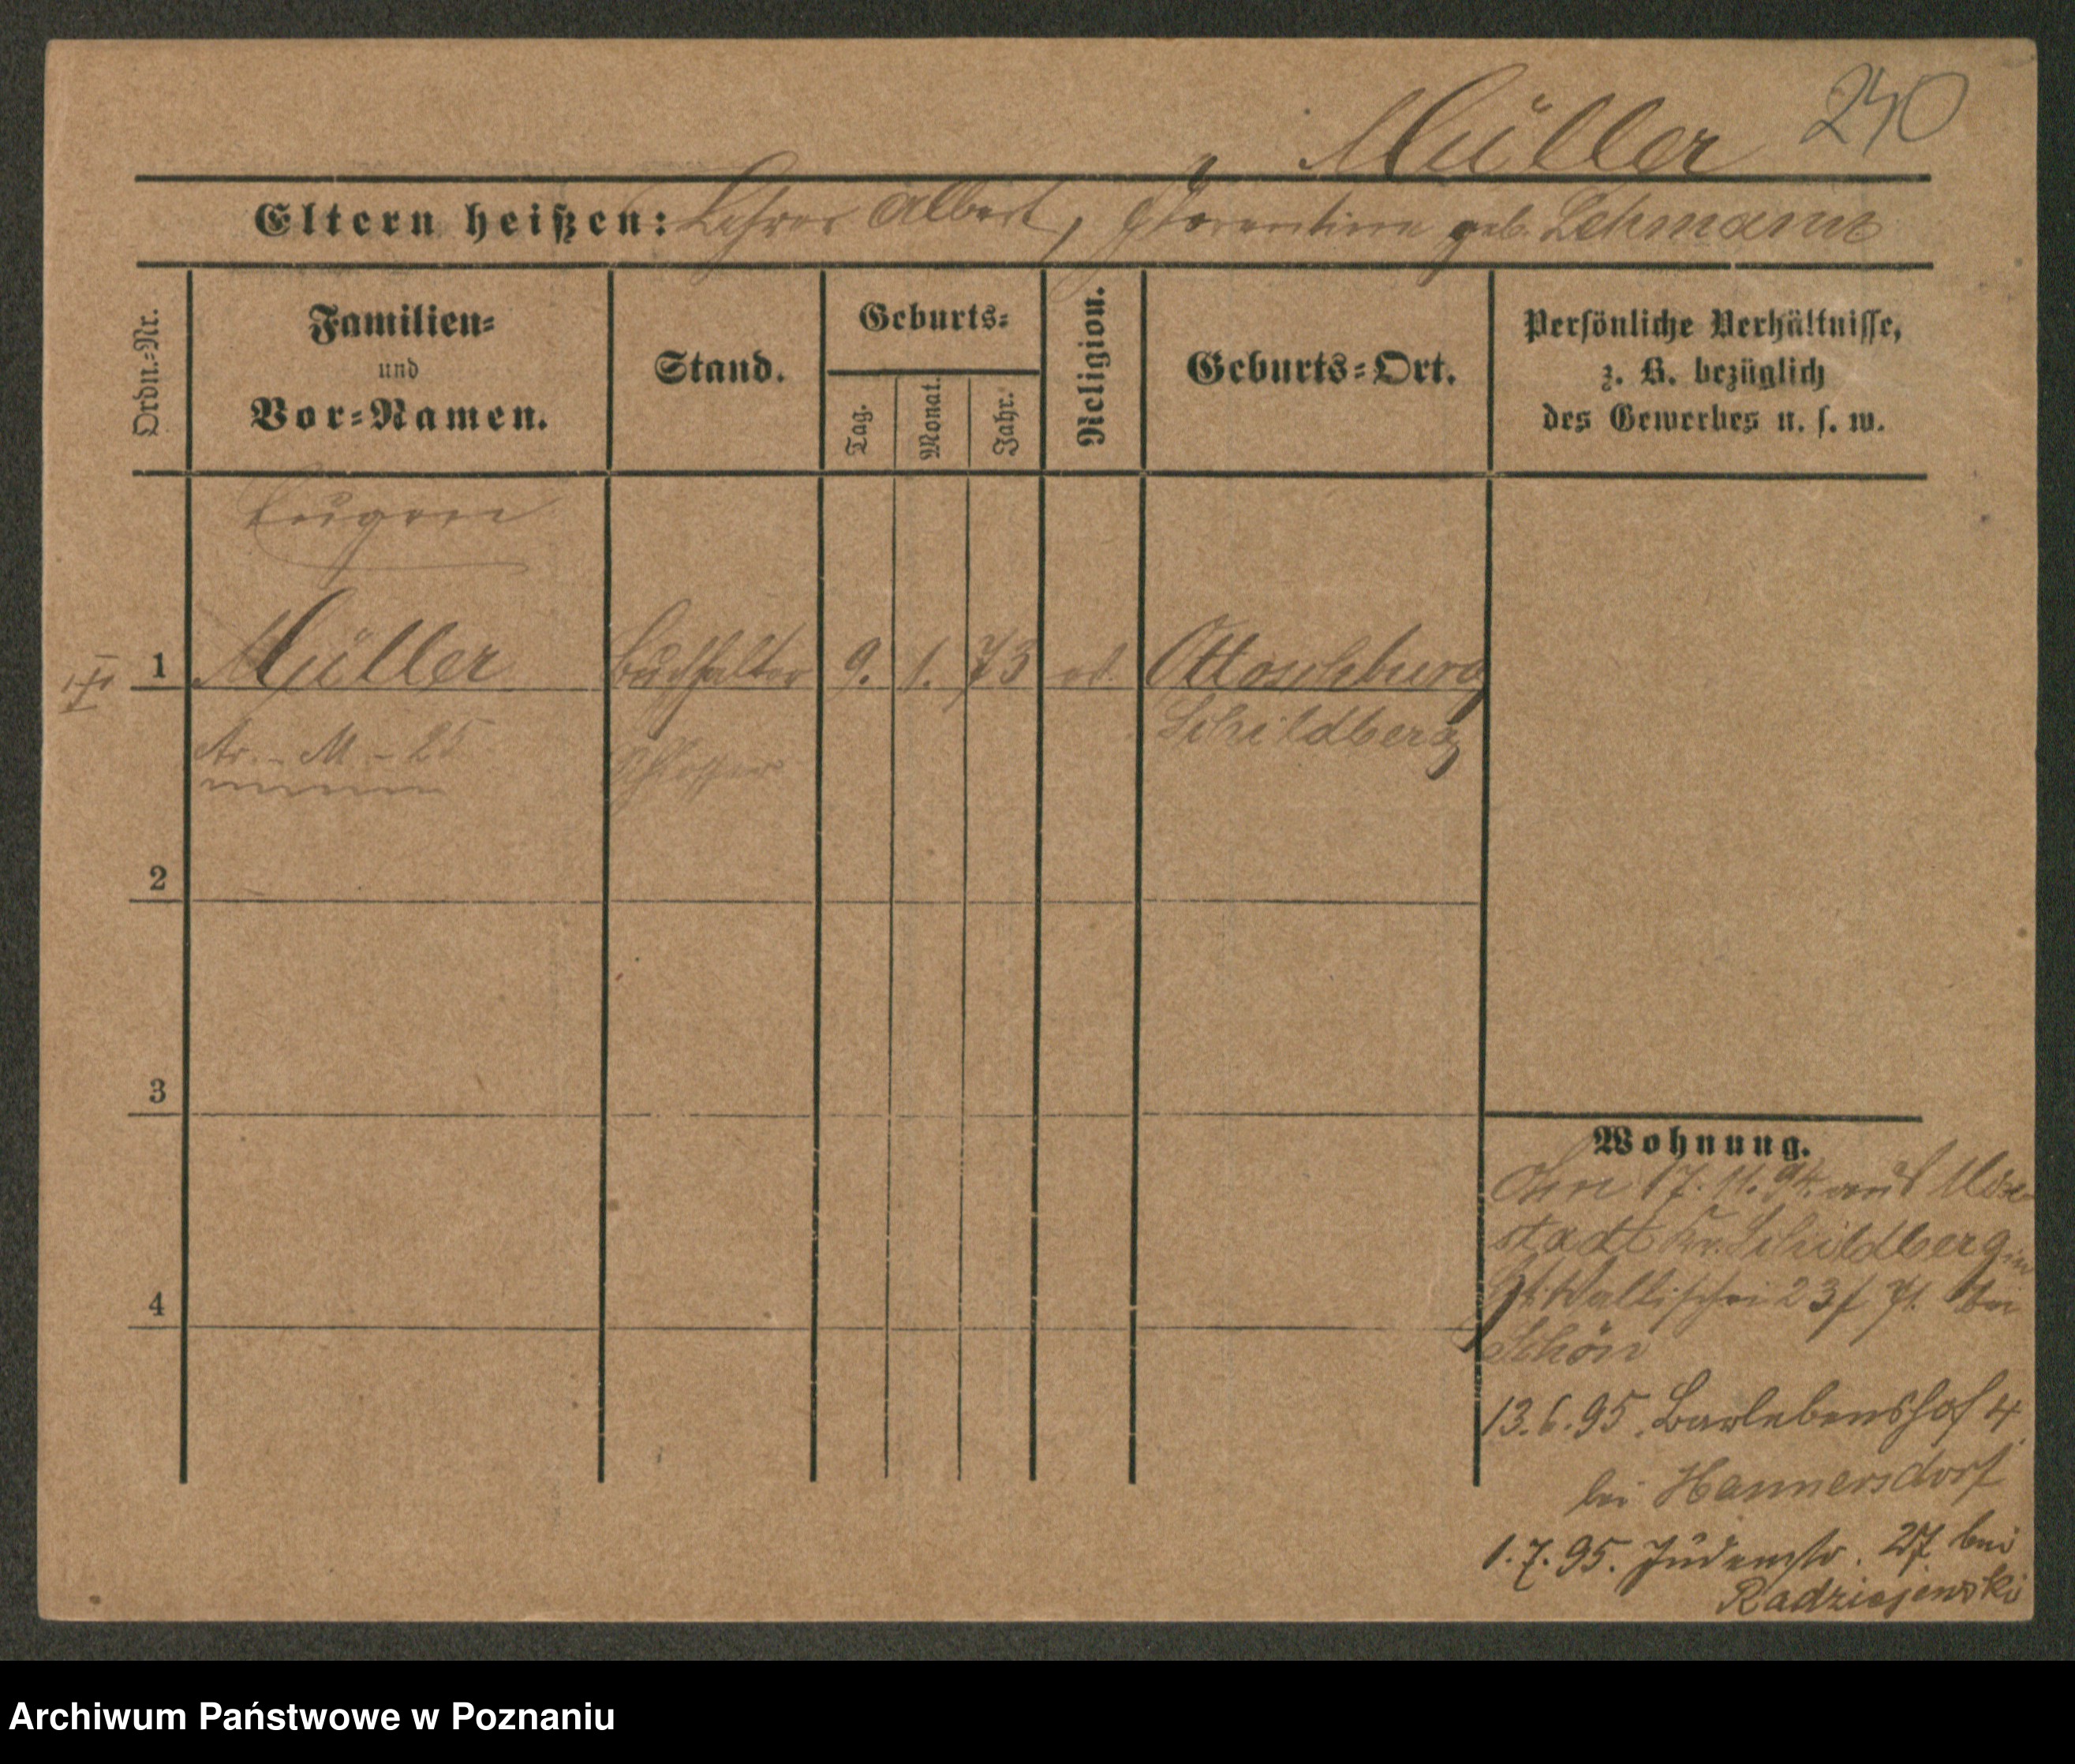 Müller 240
Eltern heißen: Lehrer Albert, Florentine geb. Lehmann
Ordn.-Nr.
Familien-
und
Vor-Namen.
Stand.
Geburts-
Tag.
Monat.
Jahr.
Religion.
Geburts-Ort.
Persönliche Verhältnisse,
z. B. bezüglich
des Gewerbes u. s. w.
Eugen
1 Müller Buchhalter 9. 1. 73 Ottoschburg
Schildberg
M - 25 Schlosser
2
3
4
Wohnung.
17. 11. 94 aus
stadt Kr. Schildberg
Wallischei 23 bei
Schön
13.6.95. Barlebenshof 4
bei Hannersdorf
1.7.95. Judenstr. 27 bei
Radziejewski
Archiwum Państwowe w Poznaniu